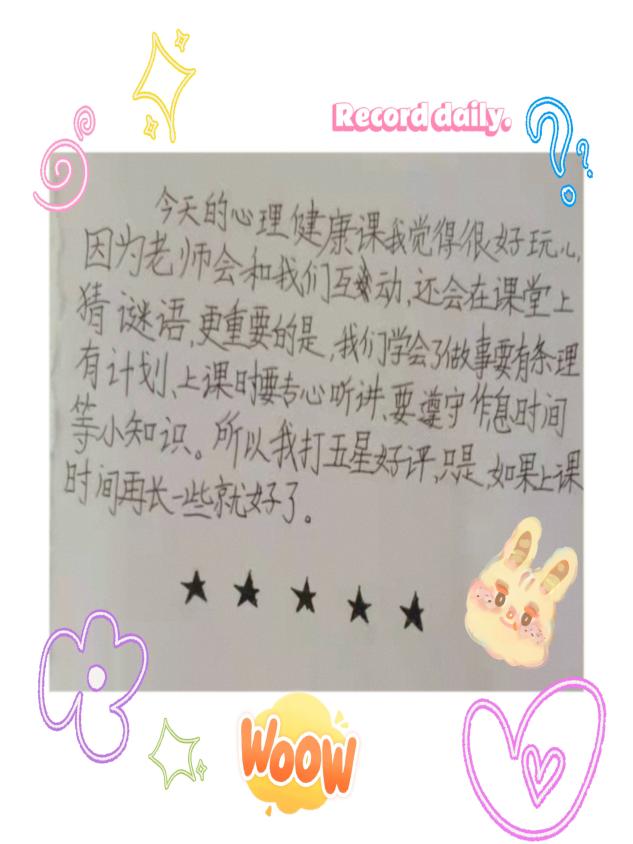 Record daily.
今天的心理健康课我觉得很好玩儿,
因为老师会和我们互动,还会在课堂上
猜谜语,更重要的是,我们学会了做事要有条理
有计划、上课时要专心听讲,要遵守作息时间
等小知识。所以我打五星好评,只是,如果上课
时间再长一些就好了。
★ ★ ★ ★ ★
WOOW